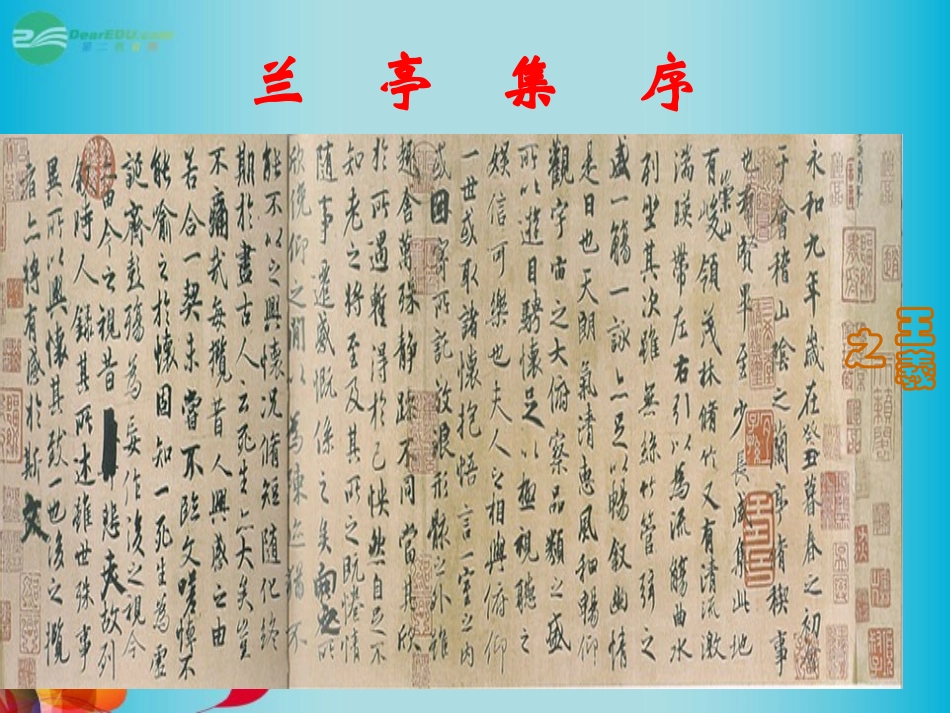 DearEDU.com
兰 亭 集 序
王羲
之
永和九年歲在癸丑暮春之初會
于會稽山陰之蘭亭脩禊事
也羣賢畢至少長咸集此地
有崇山峻領茂林脩竹又有清流激
湍暎帶左右引以為流觴曲水
列坐其次雖無絲竹管弦之
盛一觴一詠亦足以暢敘幽情
是日也天朗氣清惠風和暢仰
觀宇宙之大俯察品類之盛
所以遊目騁懷足以極視聽之
娛信可樂也夫人之相與俯仰
一世或取諸懷抱悟言一室之內
或因寄所託放浪形骸之外雖
趣舍萬殊靜躁不同當其欣
於所遇暫得於己怏然自足不
知老之將至及其所之既惓情
隨事遷感慨係之矣向之所
欣俛仰之閒以為陳迹猶不
能不以之興懷況脩短隨化終
期於盡古人云死生亦大矣豈
不痛哉每攬昔人興感之由
若合一契未嘗不臨文嗟悼不
能喻之於懷固知一死生為虛
誕齊彭殤為妄作後之視今
亦由今之視昔悲夫故列
敘時人錄其所述雖世殊事
異所以興懷其致一也後之攬
者亦將有感於斯文